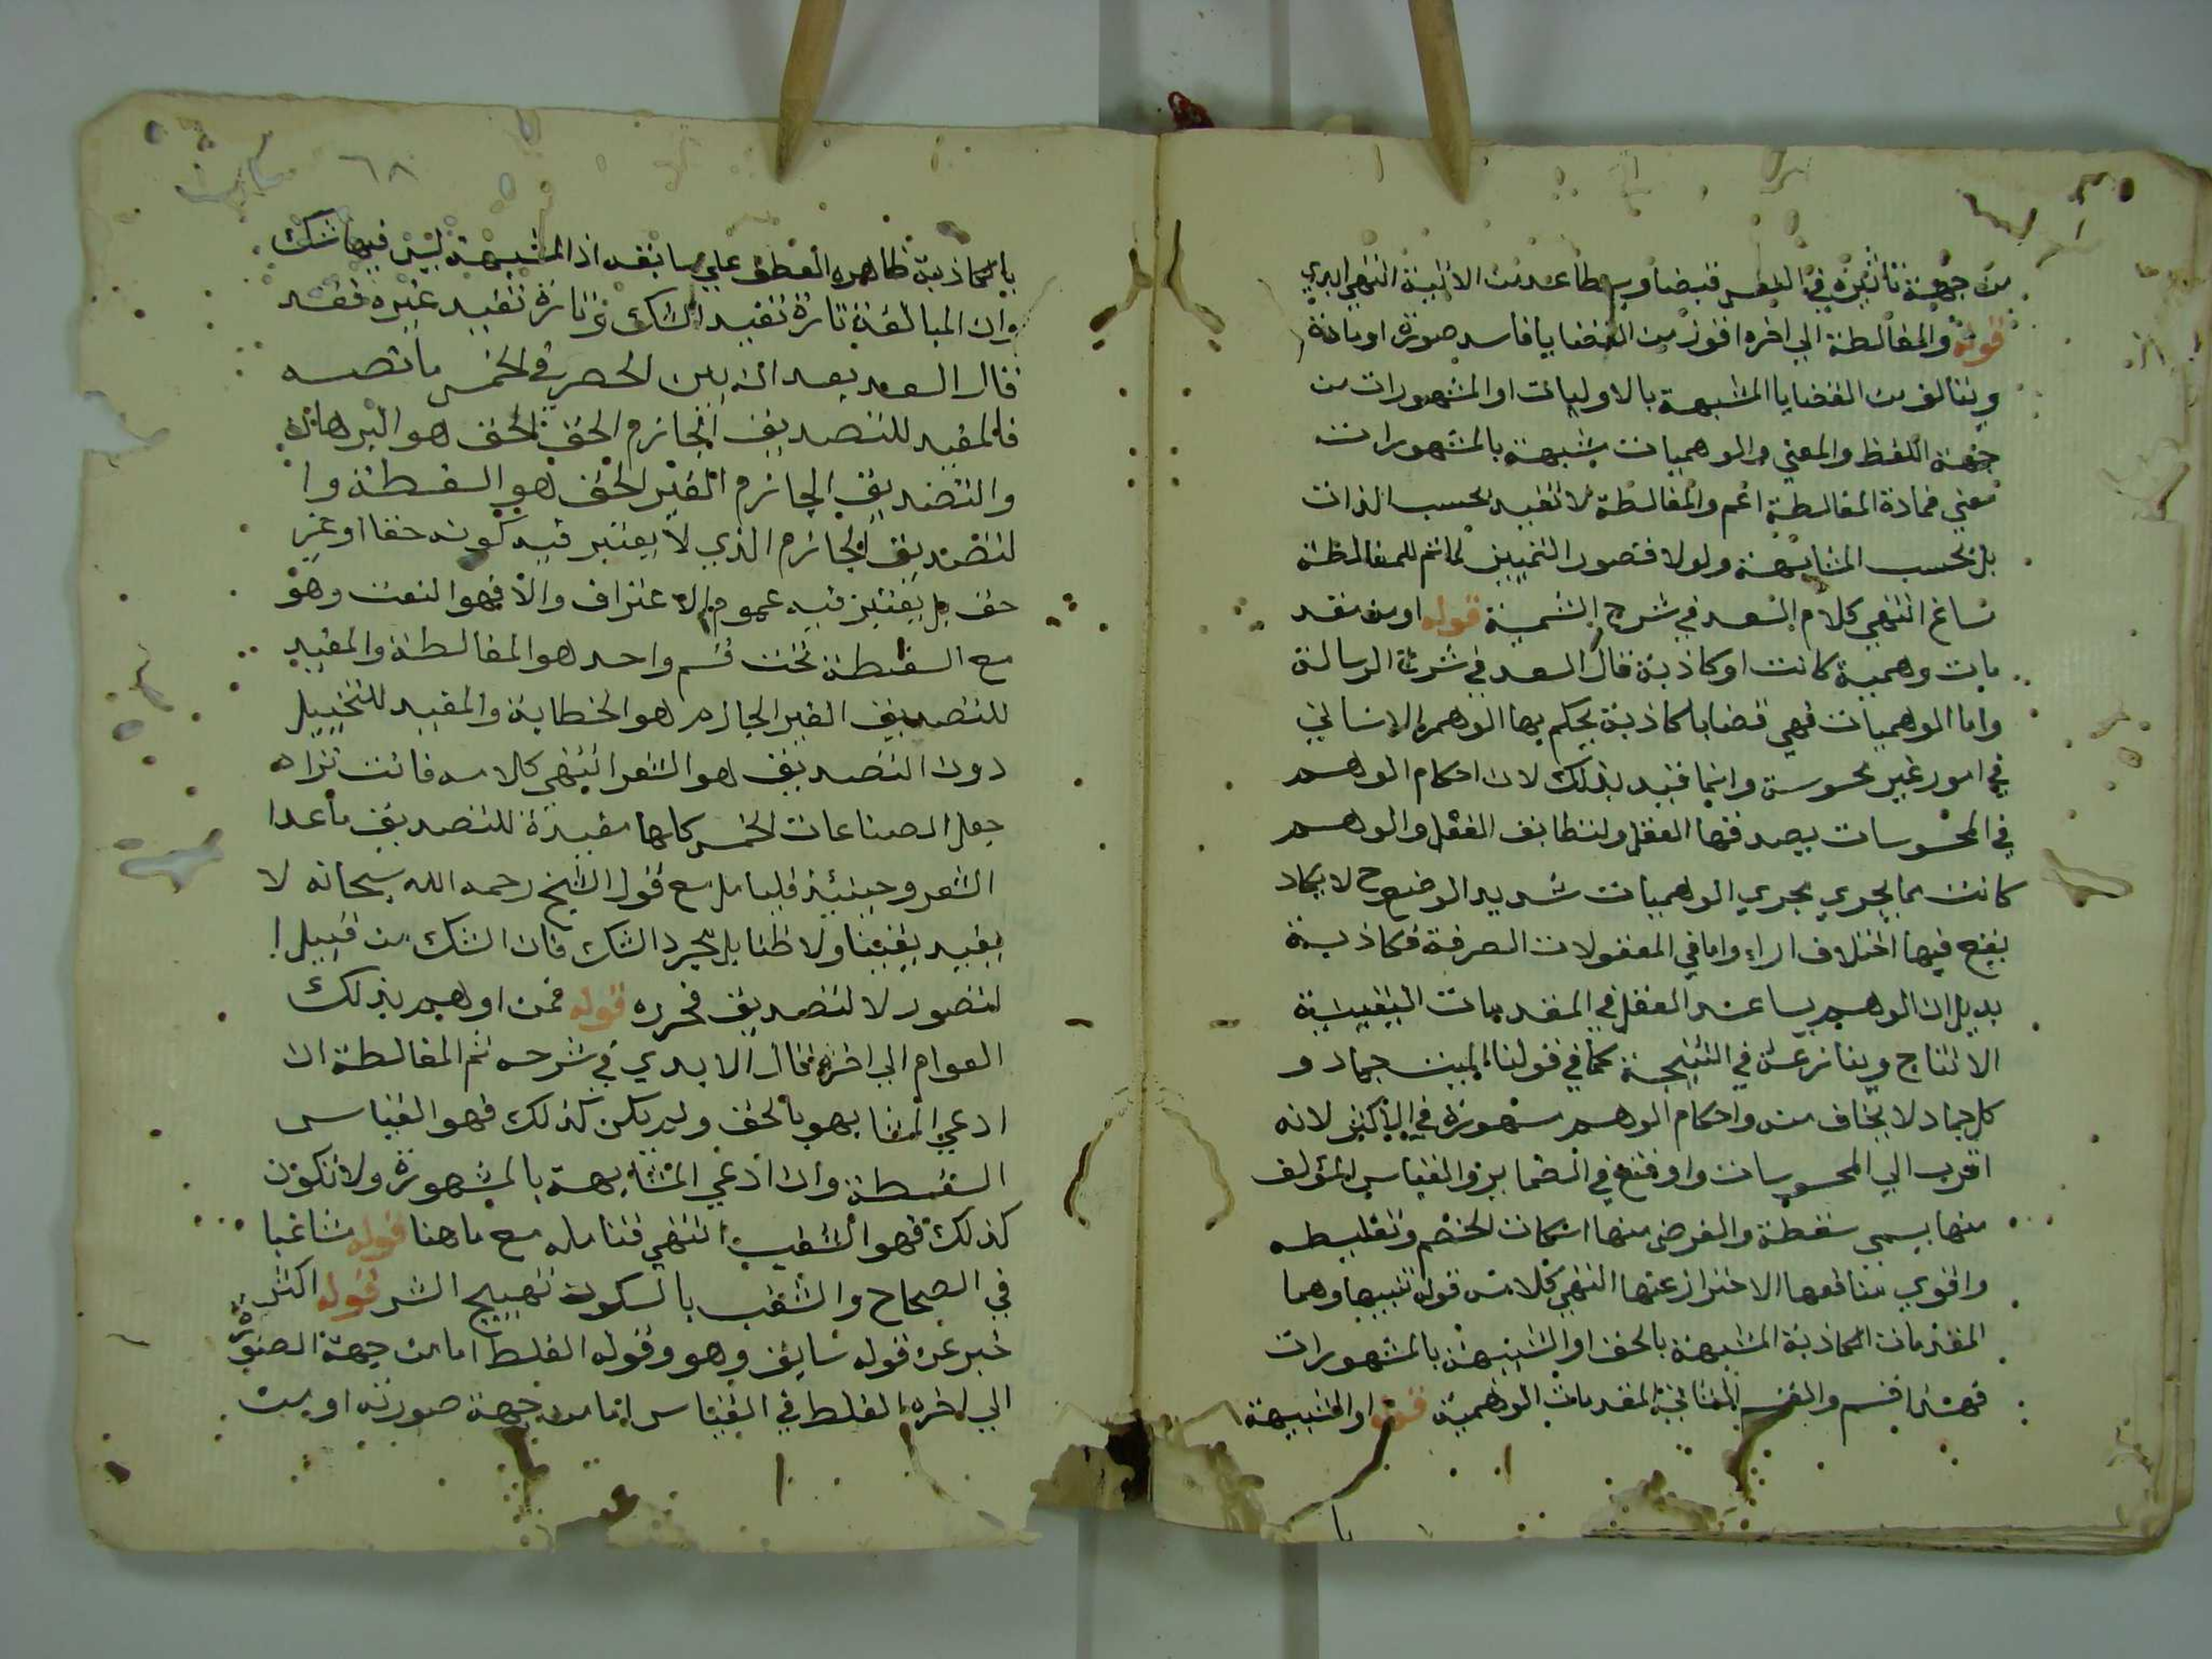 من جهة تاثيره في النفس قبضا وبسطا عدت الاقيسة انتهي ابدي
قوله والمغالطة الي اخره اقول من القضايا فاسد صورة او مادة
ويتالف من القضايا المشبهة بالاوليات او المشهورات من
جهة اللفظ والمعني والوهميات شبيهة بالمشهورات
معني فمادة المغالطة اعم والمغالطة لا تفيد بحسب الذات
بل بحسب المشابهة ولولا قصور التمييز لما تم للمغالطة
مساغ انتهي كلام السعد في شرح الشمسية قوله او من مقد
مات وهمية كانت او كاذبة قال السعد في شرح الرسالة
واما الوهميات فهي قضايا كاذبة يحكم بها الوهم الانساني
في امور غير محسوسة وانما قيد بذلك لان احكام الوهم
في المحسوسات يصدقها العقل ولتطابق العقل والوهم
كانت مما يجري مجري الوهميات شديد الوضوح لا يكاد
يقع فيها اختلاف اراء واما في المعقولات الصرفة فكاذبة
بدليل ان الوهم يساعد العقل في المقدمات اليقينية
الانتاج وينازعه في النتيجة كما في قولنا الميت جماد و
كل جماد لا يخاف منه واحكام الوهم مشهورة في الاكثر لانه
اقرب الي المحسوسات واوقع في الضماير والقياس المؤلف
منها يسمي سفسطة والغرض منها اسكات الخصم وتغليطه
واقوي منافعها الاحتراز عنها انتهي كلامه قوله تنبيها وهما
المقدمات الكاذبة المشبهة بالحق او الشبيهة بالمشهورات
فهذا قسم والقسم الثاني المقدمات الوهمية قوله او الشبيهة
٦٨
بالكاذبة ظاهره العطف علي ما بقد اذ المشبهة ليس فيها شك
وان المبالغة تارة تفيد الشك وتارة تفيد غيره فقد
قال السعد بعد ان بين الحصر في الخمس ما نصه
فالمفيد للتصديق الجازم الحق للحق هو البرهان
والتصديق الجازم الغير الحق هو السفسطة وا
لتصديق الجازم الذي لا يعتبر فيه كونه حقا او غير
حق بل يعتبر فيه عموم الاعتراف والا فهو الشغب وهو
مع السفسطة تحت قسم واحد هو المغالطة والمفيد
للتصديق الغير الجازم هو الخطابة والمفيد للتخييل
دون التصديق هو الشعر انتهي كلامه فانت تراه
جعل الصناعات الخمس كلها مفيدة للتصديق ما عدا
الشعر وحينئذ فليتامل مع قول الشيخ رحمه الله سبحانه لا
يفيد يقينا ولا ظنا بل مجرد الشك فان الشك من قبيل ا
لتصور لا لتصديق فحرره قوله فمن اوهم بذلك
العوام الي اخره فقال الابدي في شرحه ثم المغالطة ان
ادعي المشابهو بالحق ولم يكن كذلك فهو القياس
السفسطة وان ادعي المشابهة بالمشهورة ولا تكون
كذلك فهو الشغب انتهي فتامله مع ما هنا قوله مشاغبا
في الصحاح والشغب بالسكون تهييج الشر قوله اكثر
خبر عن قوله سابق وهو وقوله الغلط اما من جهة الصورة
الي اخره الغلط في القياس اما من جهة صورته او من